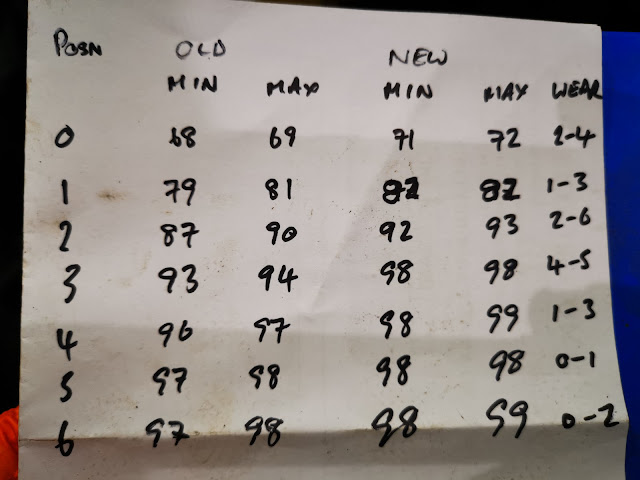 POSN OLD NEW
MIN MAX MIN MAX WEAR
0 68 69 71 72 2-4
1 79 81 82 82 1-3
2 87 90 92 93 2-6
3 93 94 98 98 4-5
4 96 97 98 99 1-3
5 97 98 98 98 0-1
6 97 98 98 99 0-2